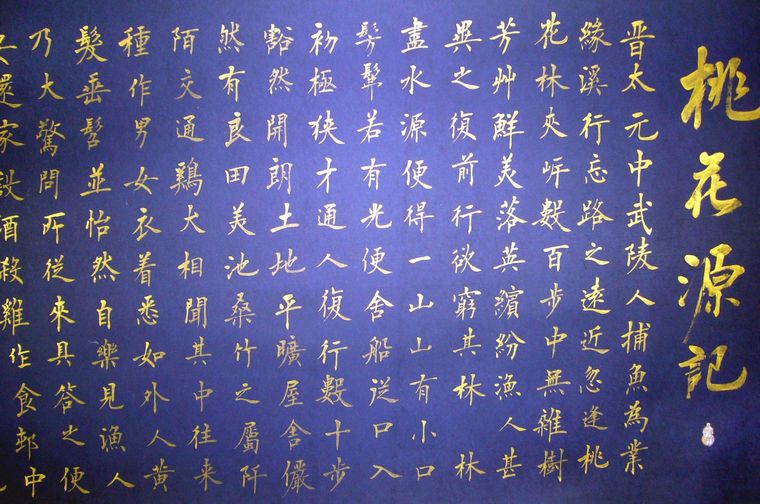 桃花源記
晉太元中武陵人捕魚為業
緣溪行忘路之遠近忽逢桃
花林夾岸數百步中無雜樹
芳艸鮮美落英繽紛漁人甚
異之復前行欲窮其林林
盡水源便得一山山有小口
髣髴若有光便舍船從口入
初極狹才通人復行數十步
豁然開朗土地平曠屋舍儼
然有良田美池桑竹之屬阡
陌交通鷄犬相聞其中往来
種作男女衣着悉如外人黃
髮垂髫並怡然自樂見漁人
乃大驚問所從來具答之便
還家設酒殺雞作食邨中